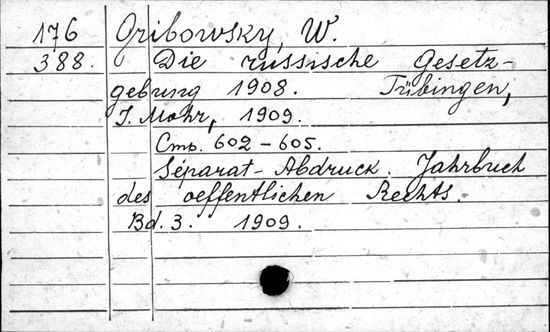 176 Gribowsky, W.
388. Die russische Gesetz-
gebung 1908. Tübingen,
J. Mohr, 1909.
Стр. 602-605.
Séparat-Abdruck. Jahrbuch
des oeffentlichen Rechts.
Bd. 3. 1909.